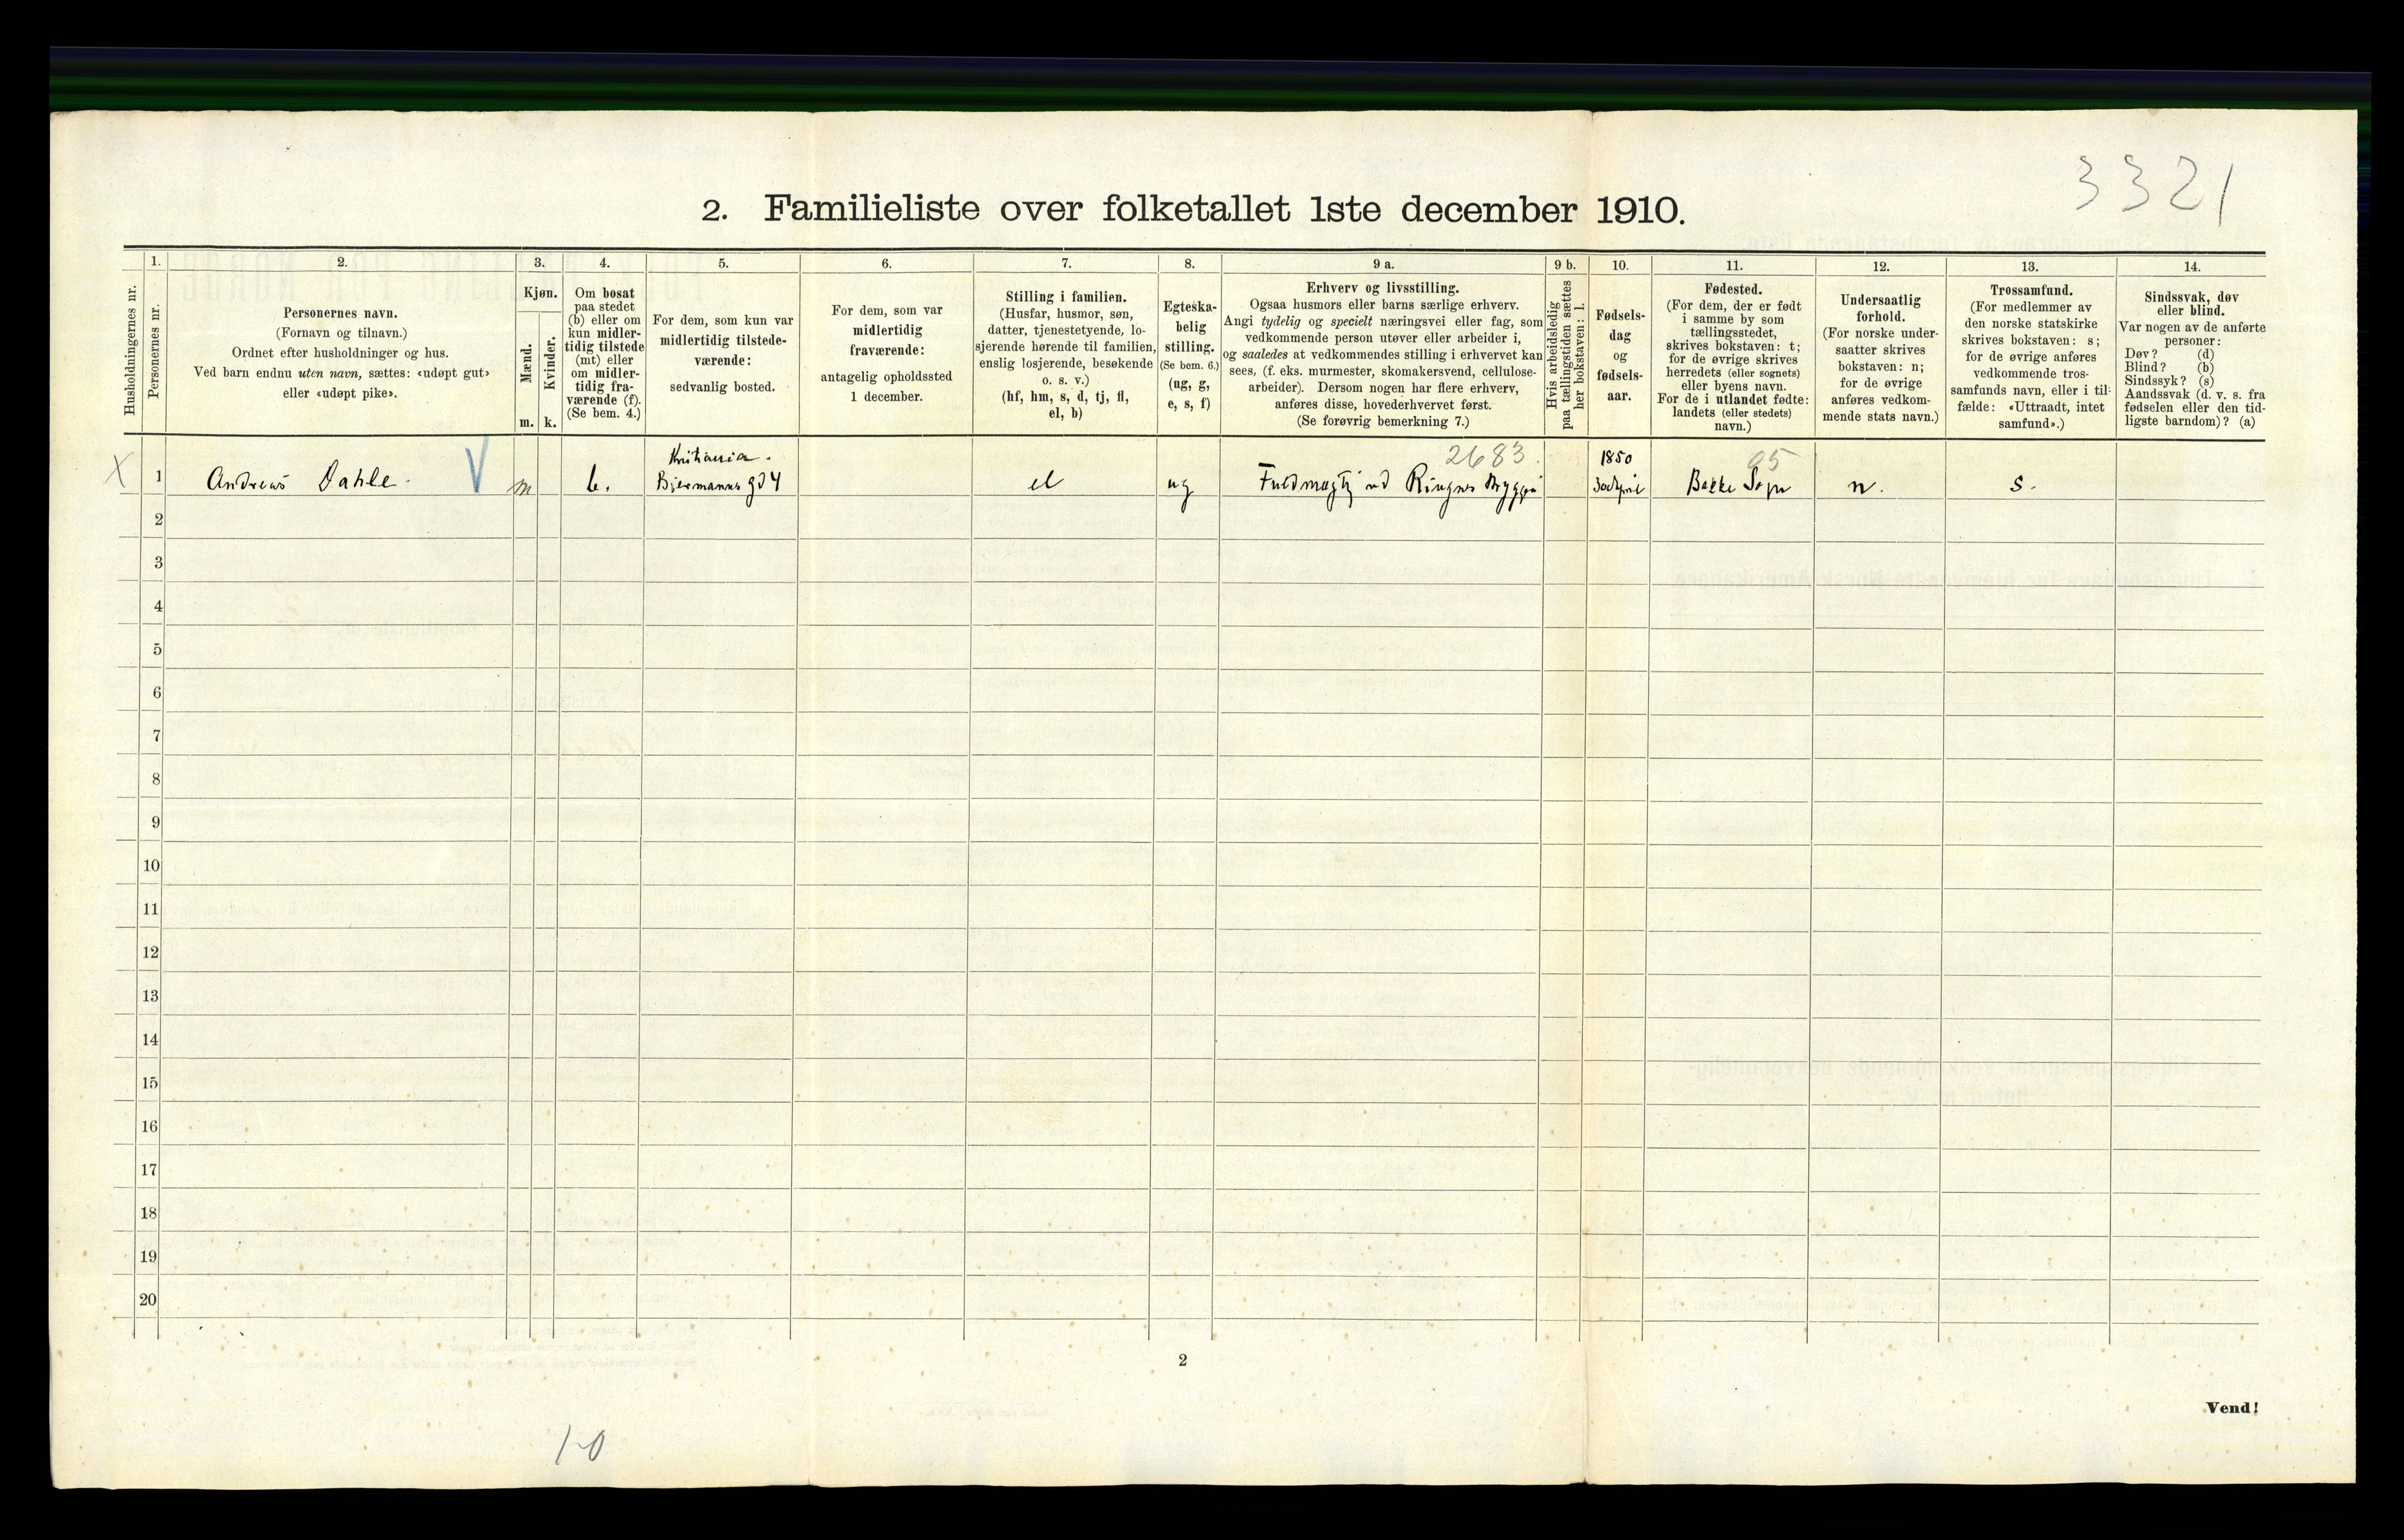 3321
2. Familieliste over folketallet 1ste december 1910.
Husholdningernes nr.
1.
Personernes nr.
2.
Personernes navn.
(Fornavn og tilnavn.)
Ordnet efter husholdninger og hus.
Ved barn endnu uten navn, sættes: «udøpt gut»
eller «udøpt pike».
3.
Kjøn.
Mænd.
Kvinder.
m. k.
4.
Om bosat
paa stedet
(b) eller om
kun midler-
tidig tilstede
(mt) eller
om midler-
tidig fra-
værende (f).
(Se bem. 4.)
5.
For dem, som kun var
midlertidig tilstede-
værende:
sedvanlig bosted.
6.
For dem, som var
midlertidig
fraværende:
antagelig opholdssted
1 december.
7.
Stilling i familien.
(Husfar, husmor, søn,
datter, tjenestetyende, lo-
sjerende hørende til familien,
enslig losjerende, besøkende
o. s. v.)
(hf, hm, s, d, tj, fl,
el, b)
8.
Egteska-
belig
stilling.
(Se bem. 6.)
(ug, g,
e, s, f)
9 a.
Erhverv og livsstilling.
Ogsaa husmors eller barns særlige erhverv.
Angi tydelig og specielt næringsvei eller fag, som
vedkommende person utøver eller arbeider i,
og saaledes at vedkommendes stilling i erhvervet kan
sees, (f. eks. murmester, skomakersvend, cellulose-
arbeider). Dersom nogen har flere erhverv,
anføres disse, hovederhvervet først.
(Se forøvrig bemerkning 7.)
9 b.
Hvis arbeidsledig
paa tællingstiden sættes
her bokstaven: l.
10.
Fødsels-
dag
og
fødsels-
aar.
11.
Fødested.
(For dem, der er født
i samme by som
tællingsstedet,
skrives bokstaven: t;
for de øvrige skrives
herredets (eller sognets)
eller byens navn.
For de i utlandet fødte:
landets (eller stedets)
navn.)
12.
Undersaatlig
forhold.
(For norske under-
saatter skrives
bokstaven: n;
for de øvrige
anføres vedkom-
mende stats navn.)
13.
Trossamfund.
(For medlemmer av
den norske statskirke
skrives bokstaven: s;
for de øvrige anføres
vedkommende tros-
samfunds navn, eller i til-
fælde: «Uttraadt, intet
samfund».)
14.
Sindssvak, døv
eller blind.
Var nogen av de anførte
personer:
Døv? (d)
Blind? (b)
Sindssyk? (s)
Aandssvak (d. v. s. fra
fødselen eller den tid-
ligste barndom)? (a)
Kristiania. 2683. 1850 05
X 1 Andreas Dahle. V m b. Bjermanns gd 4 el ug Fuldmægtig ved Ringnes Bryggeri 30 April Bakke Sogn n. s.
2
3
4
5
6
7
8
9
10
11
12
13
14
15
16
17
18
19
20
2
Vend!
1-0